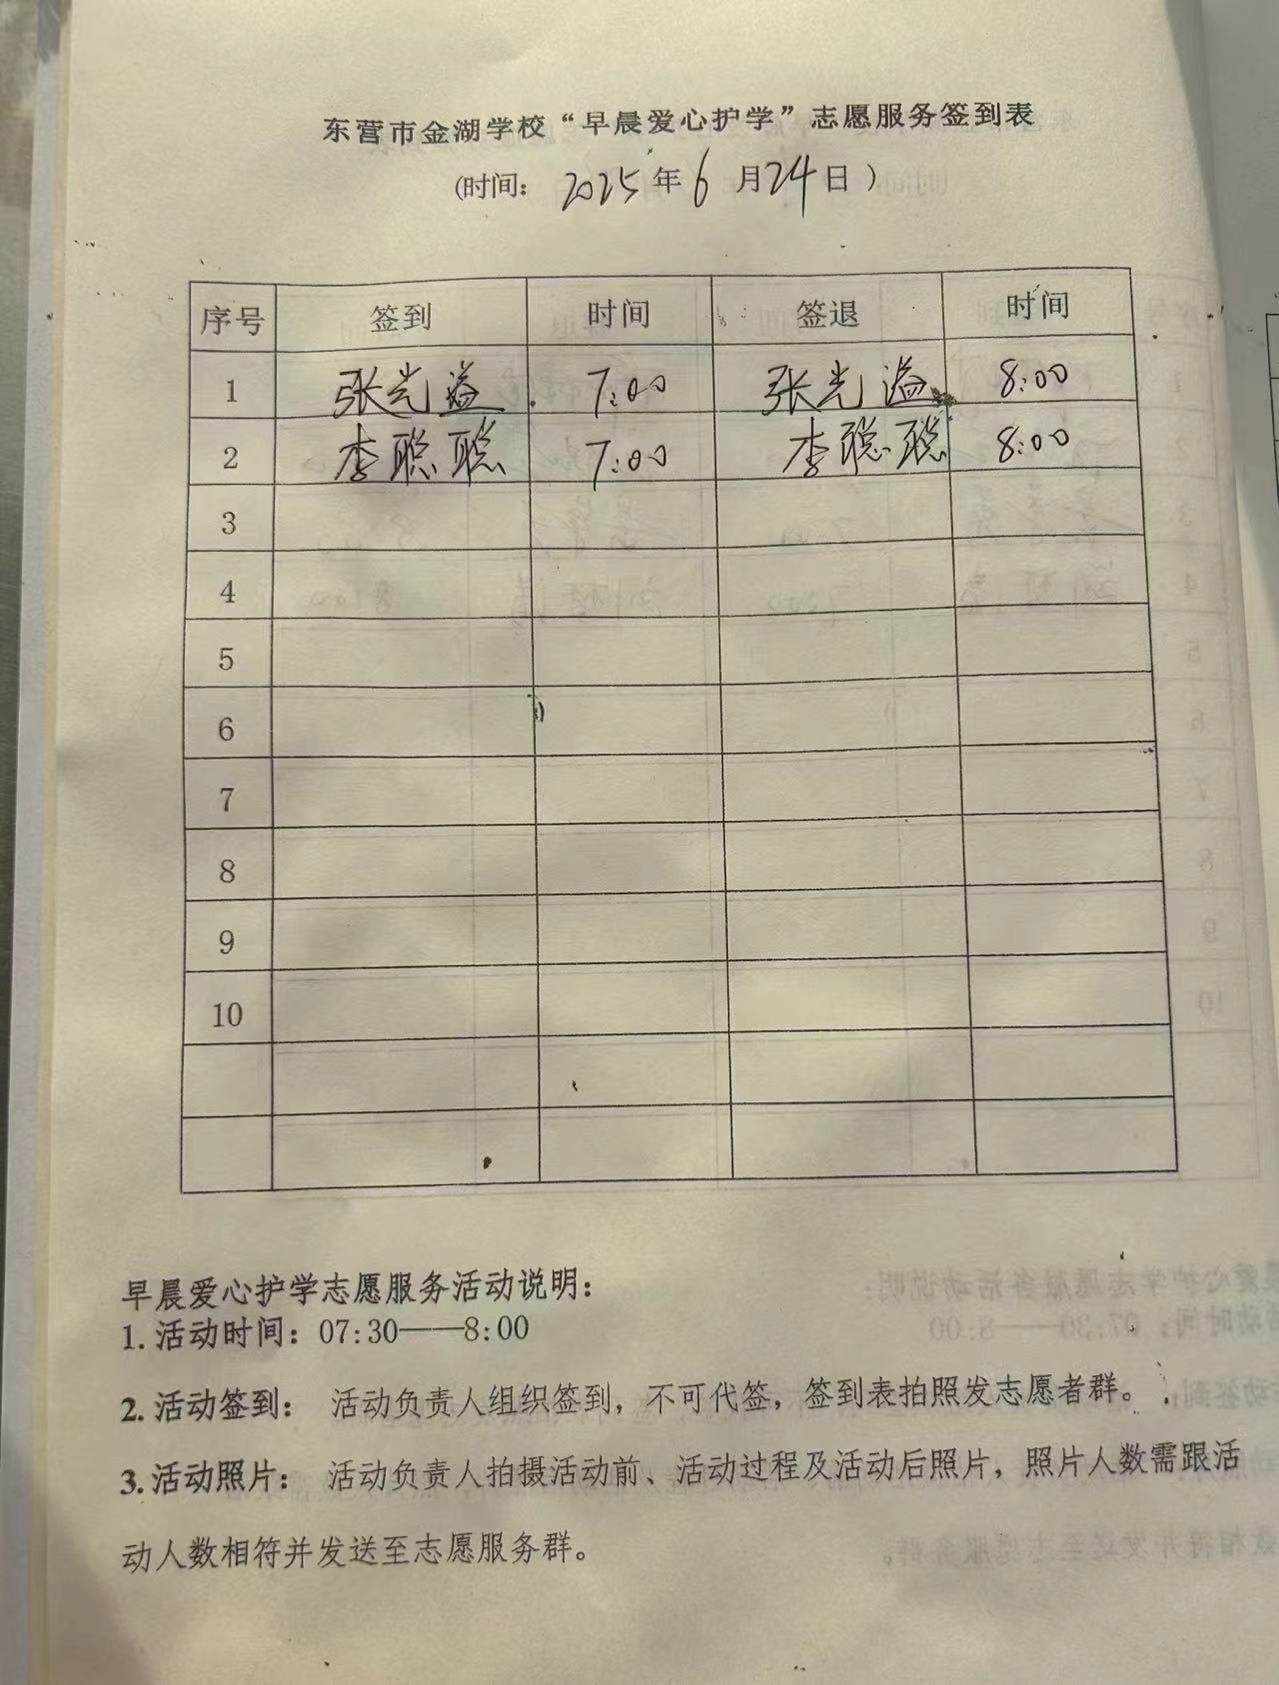 东营市金湖学校“早晨爱心护学”志愿服务签到表
(时间： 2025年6月24日)
序号 签到 时间 签退 时间
1 张光溢 7:00 张光溢 8:00
2 李聪聪 7:00 李聪聪 8:00
3
4
5
6
7
8
9
10
早晨爱心护学志愿服务活动说明：
1. 活动时间：07:30——8:00
2. 活动签到： 活动负责人组织签到，不可代签，签到表拍照发志愿者群。
3. 活动照片： 活动负责人拍摄活动前、活动过程及活动后照片，照片人数需跟活
动人数相符并发送至志愿服务群。